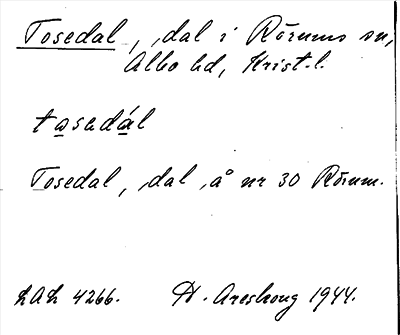 Tosedal, dal i Rörums sn,
Albo hd, Krist. l.
tasedál
Tosedal, dal, å nr 30 Rörum.
LAL 4266. H. Areskoug 1944.